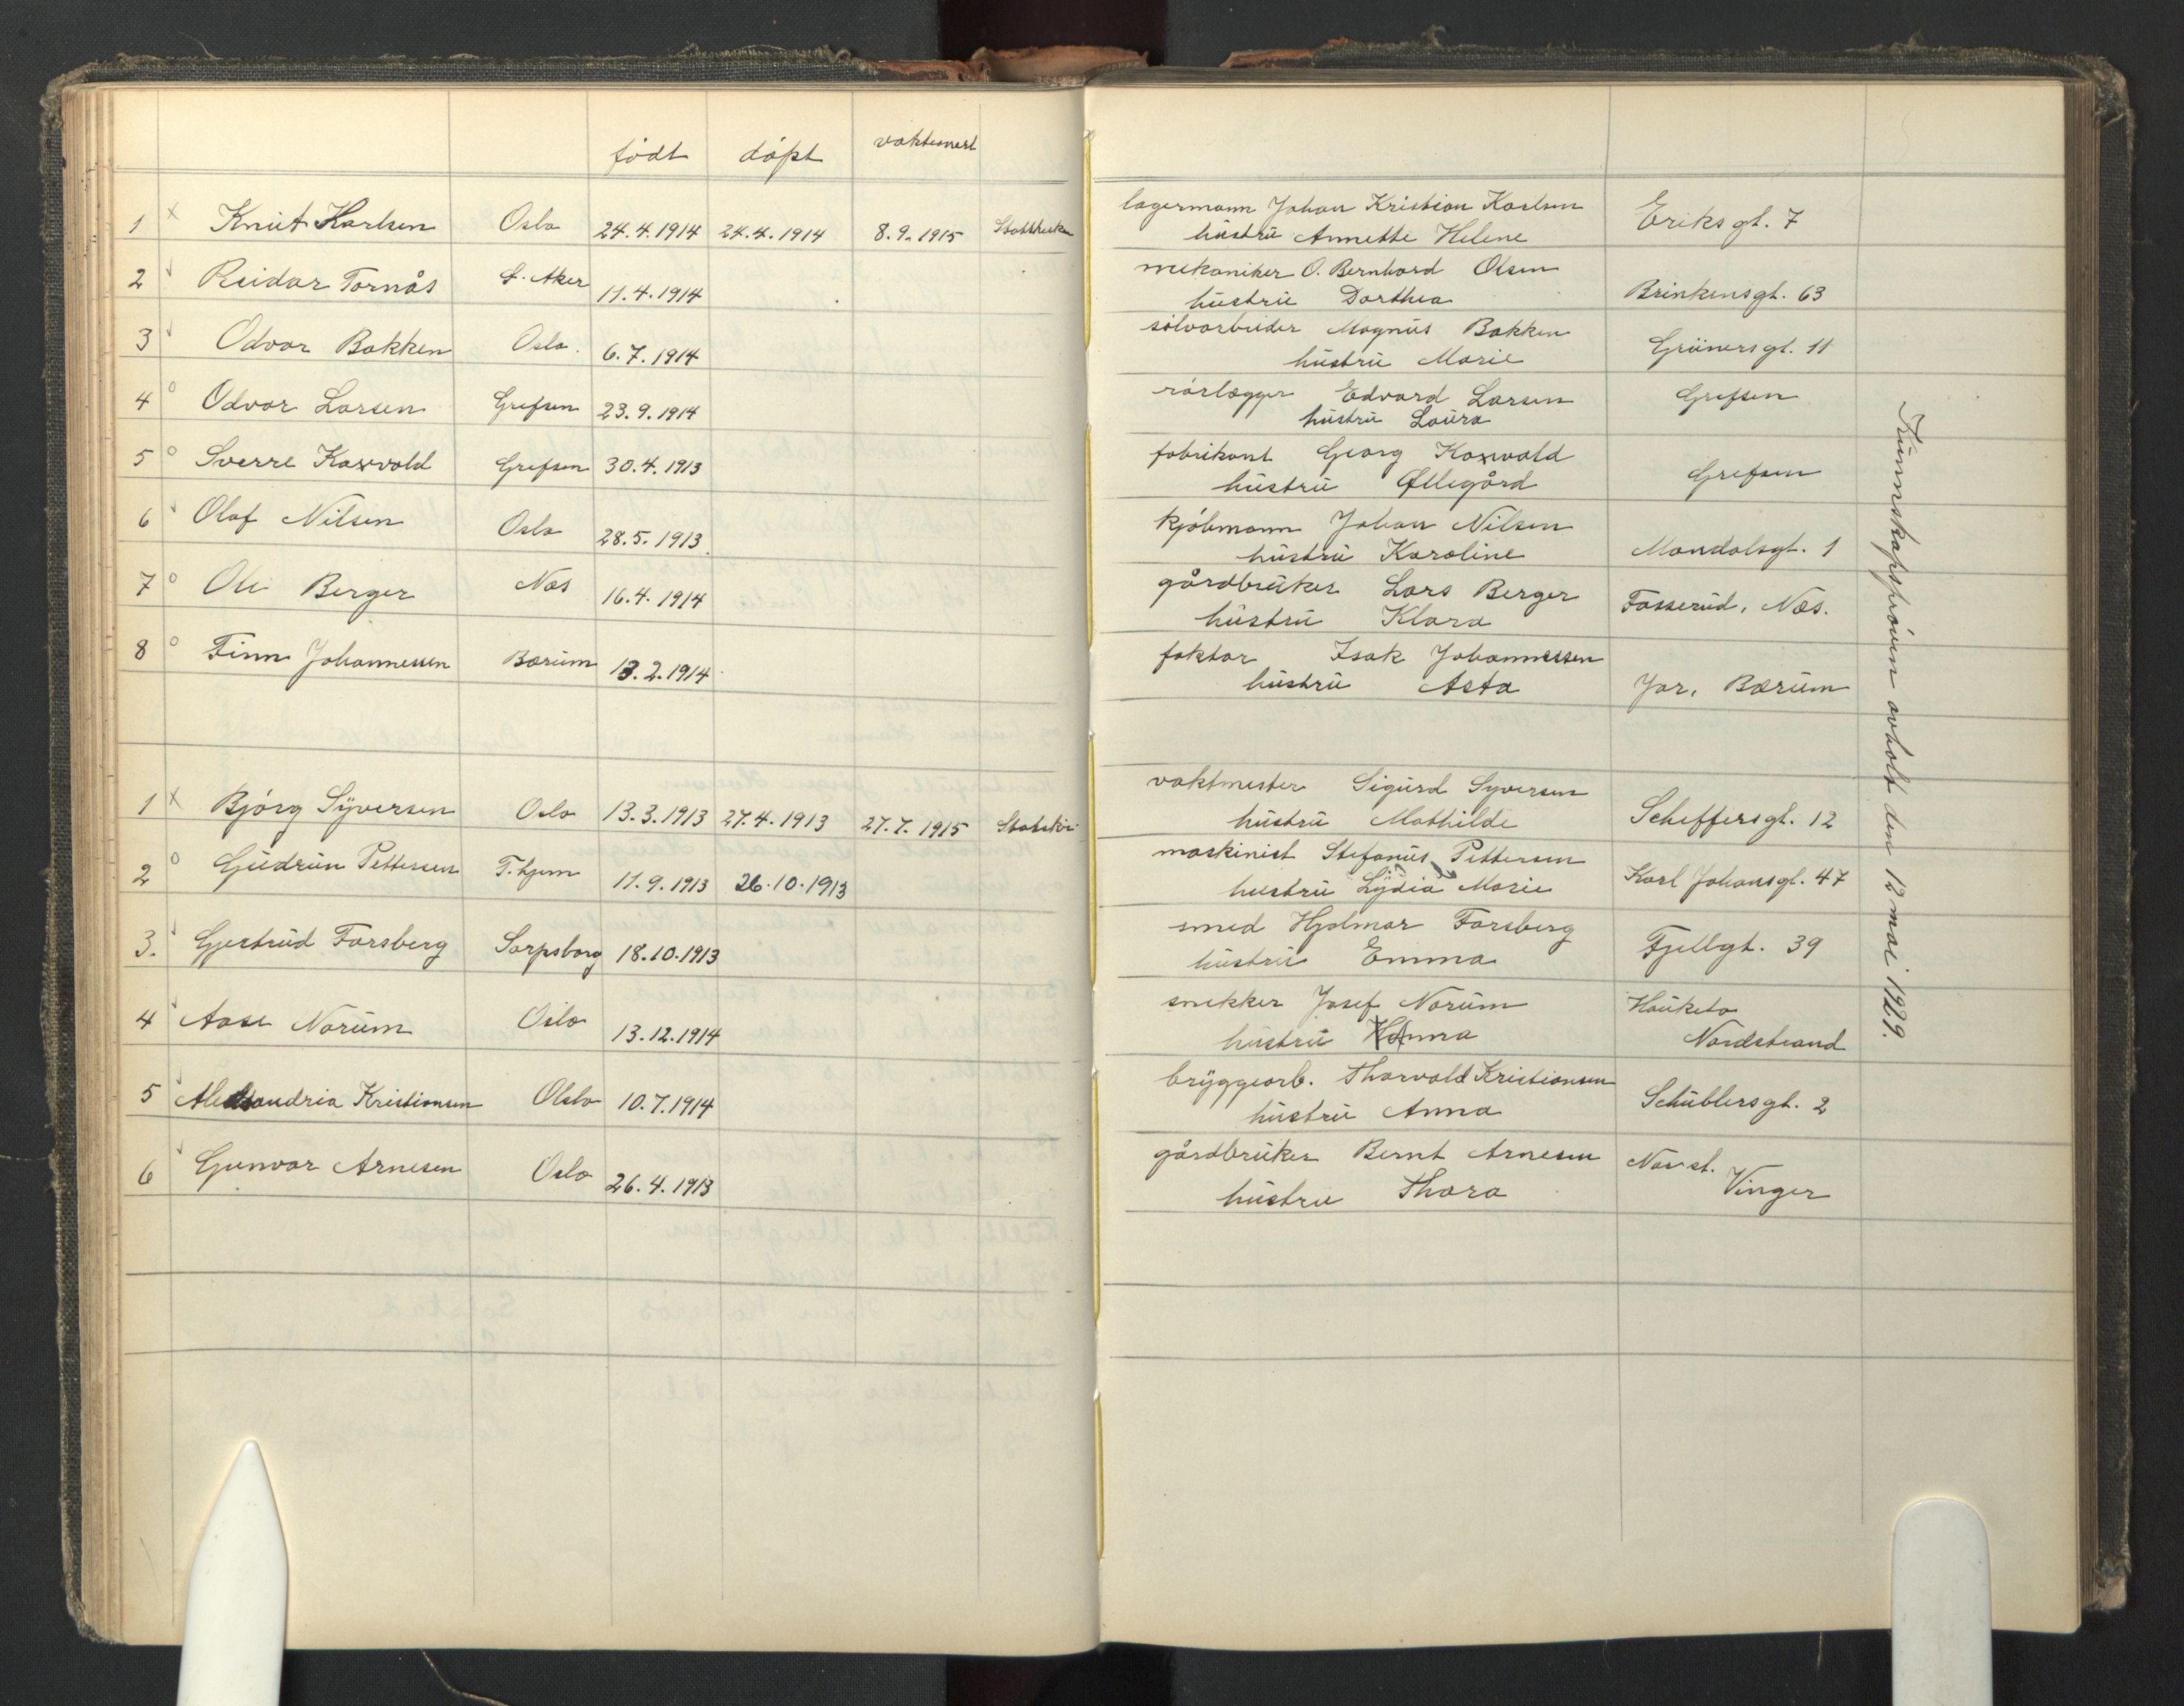 født døpt vaksinert
1 x Knut Karlsen Oslo 24.4.1914 24.4.1914 8.9.1915
2 Reidar Tornås Ø. Aker 11.4.1914
3 Odvar Bakken Oslo. 6.7.1914
4 o Odvar Larsen Grefsen 23.9.1914
5 o Sverre Kaxrold Grefsen 30.4.1913
6 Olaf Nilsen Oslo 28.5.1913.
7 o Ole Berger Nes 16.4.1914
8 o Finn Johannessen Bærum 13.2.1914
1 x Bjørg Syversen Oslo 13.3.1913 27.4.1913 27.7.1915 Statskir.
2 o Gudrun Pettersen T.hjem 11.9.1913 26.10.1913
3. Gjertrud Forsberg Sarpsborg 18.10.1913
4 Aase Norum Oslo 13.12.1914
5 Kristiansen Oslo 10.7.1914
6 Gunvor Arnesen Oslo 26.4.1913
lagermann Johan Kristian Karlsen Eriksgt. 7
hustru Annette Helene
mekaniker O. Bernhard Olsen
hustru Dorthea Brinkensgt. 63
sølvarbeider Magnus Bakken
hustru Marie Grünersgt. 11
rørlægger Edvard Larsen Grefsen
hustru Laura
fabrikant Georg Kaxwold
hustru Øllegård Grefsen
kjøbmann Johan Nilsen
hustru Karoline Mandalsgt. 1
gårdbruker Lars Berger
hustru Klara Fosserud, Næs.
faktor Isak Johannessen
hustru Asta Jar, Bærum
vaktmester Sigurd Syversen
hustru Mathilde Scheffersgt. 12
maskinist Stefanus Pettersen
hustru Lydia Marie Karl Johansgt. 47
smed Hjalmar Forsberg
hustru Emma Fjellgt. 39
snekker Josef Norum Hauketo
hustru Nordstrand
bryggearb. Thorvald Kristiansen
hustru Anna Schüblersgt. 2
gårdbruker Bernt Arnesen
hustru Thora Vinger
Kunnskapsprøven avholdt den 12 mai 1929.